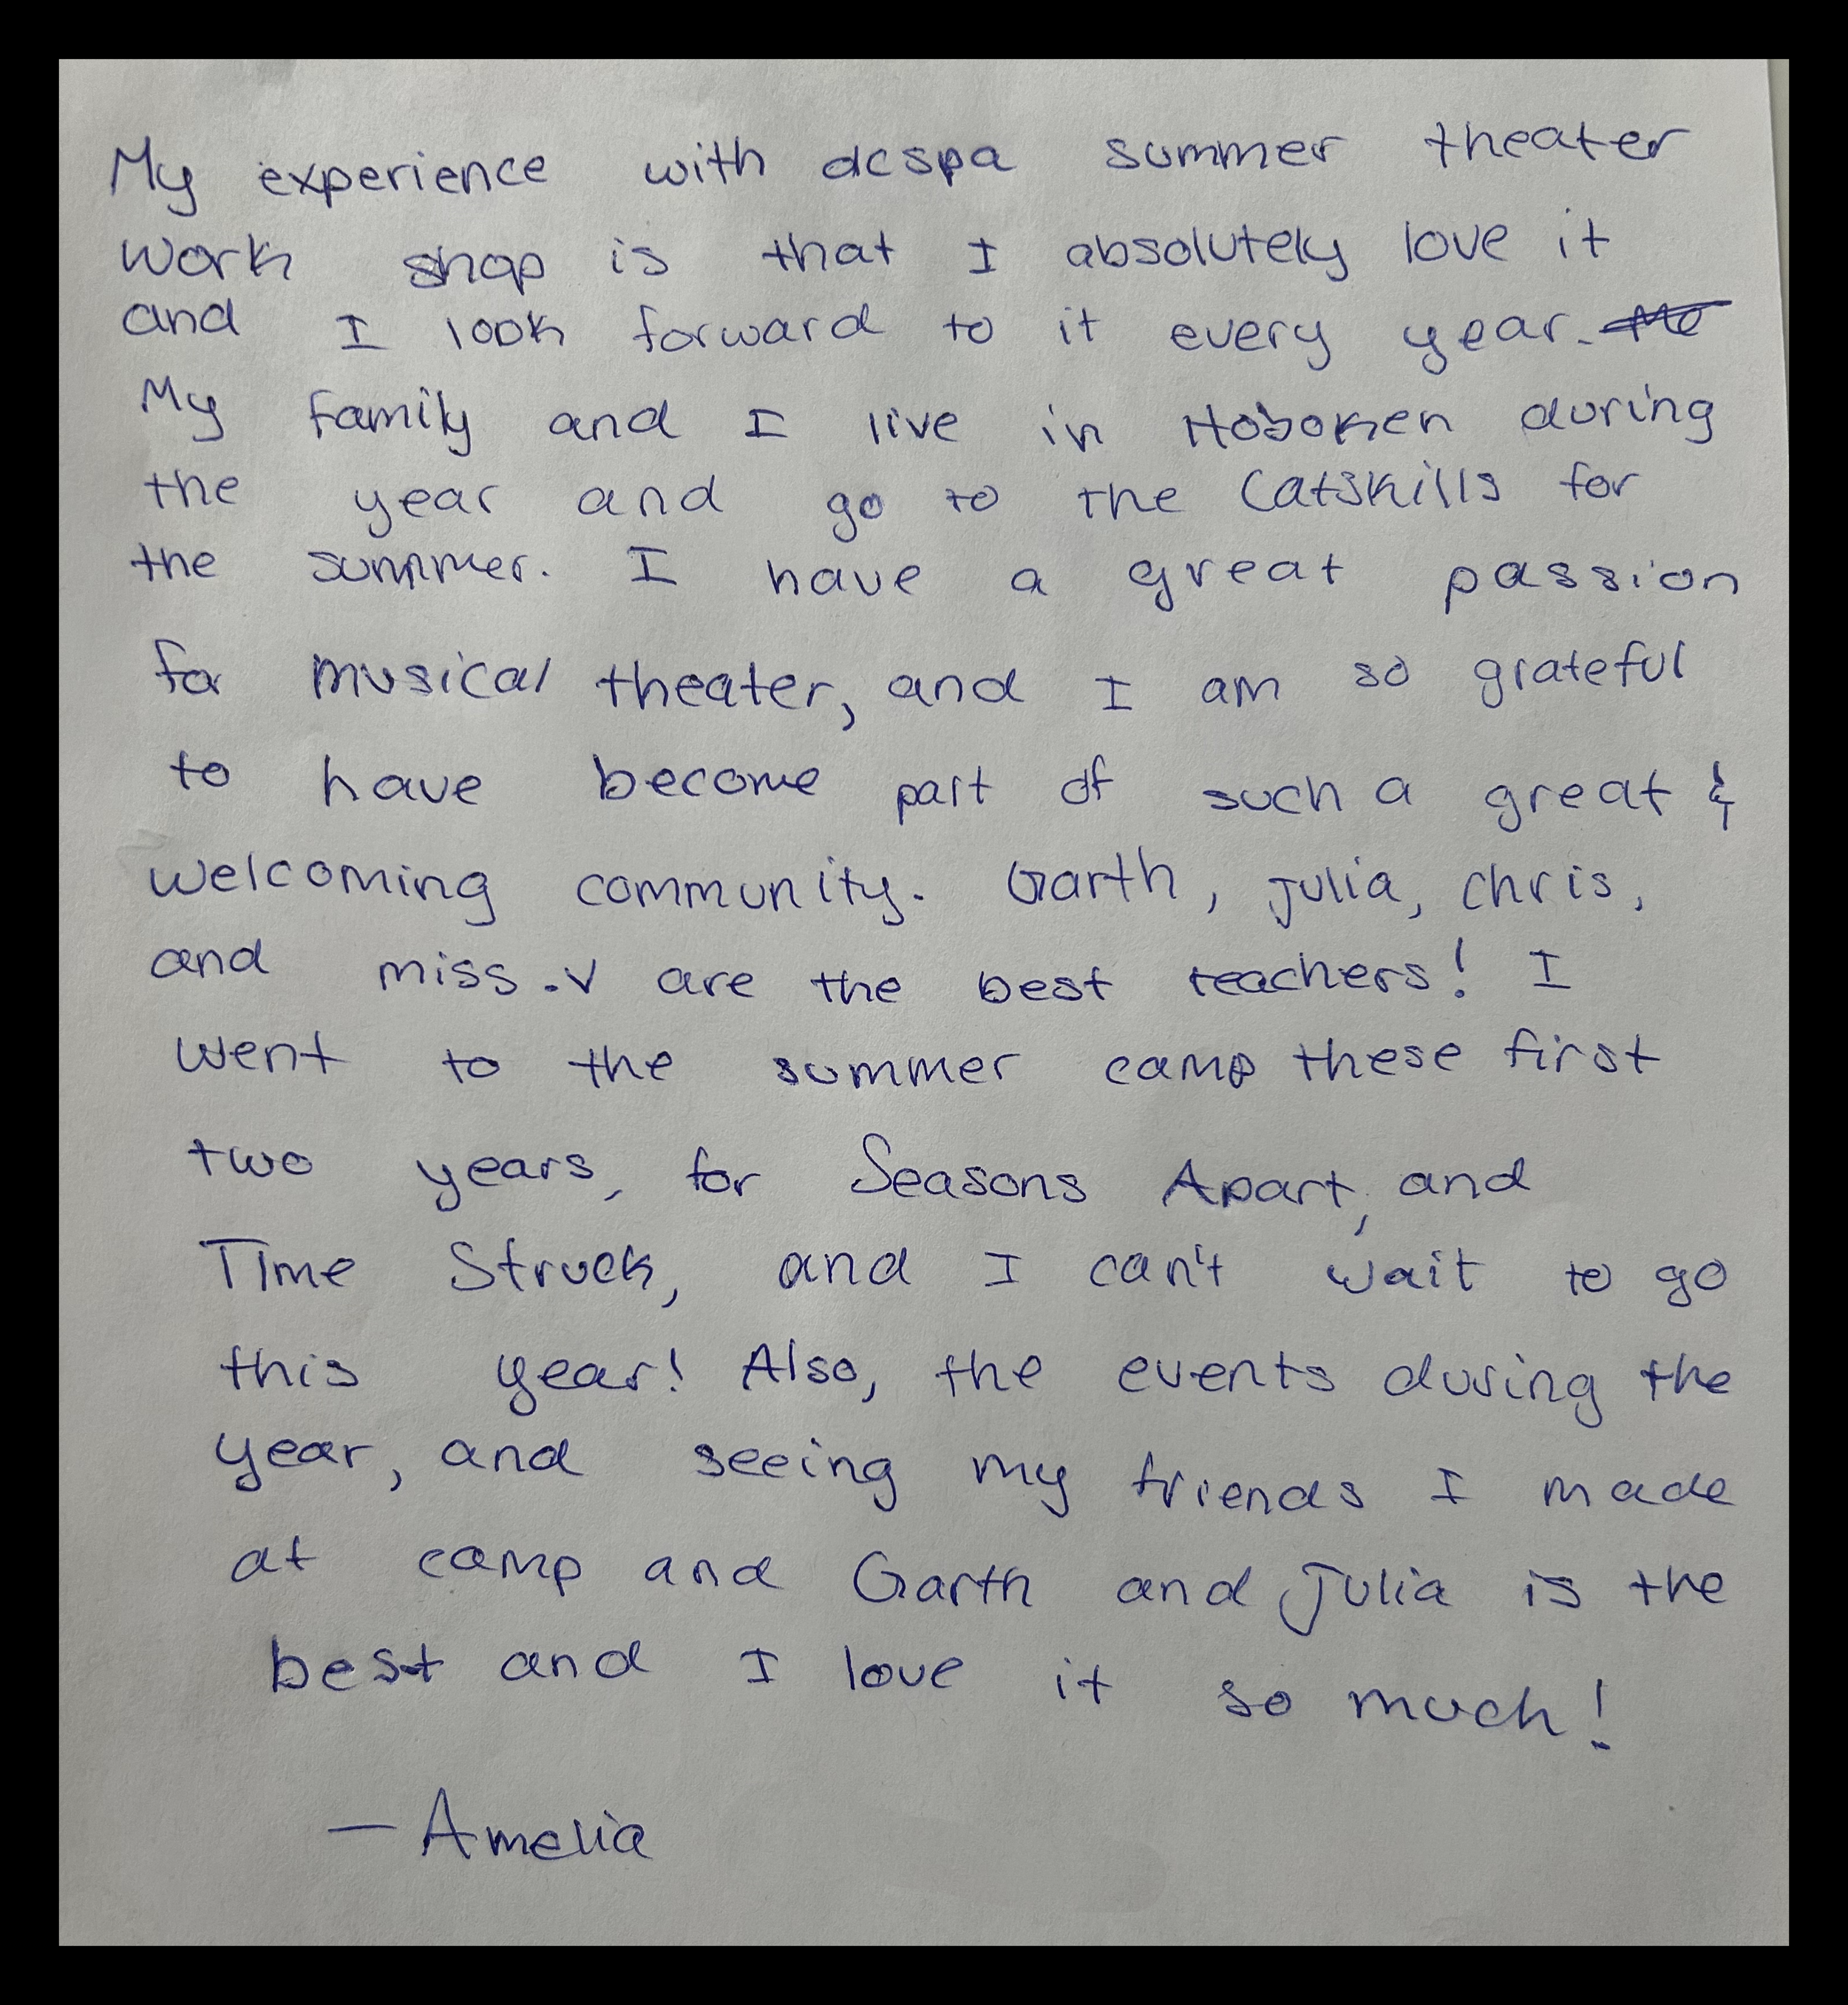 My experience with dcspa summer theater
work shop is that I absolutely love it
and I look forward to it every year.
My family and I live in Hoboken during
the year and go to the Catskills for
the summer. I have a great passion
for musical theater, and I am so grateful
to have become part of such a great &
welcoming community. Garth, Julia, Chris,
and miss.v are the best teachers! I
went to the summer camp these first
two years, for Seasons Apart, and
Time Struck, and I can't wait to go
this year! Also, the events during the
year, and seeing my friends I made
at camp and Garth and Julia is the
best and I love it so much!
— Amelia